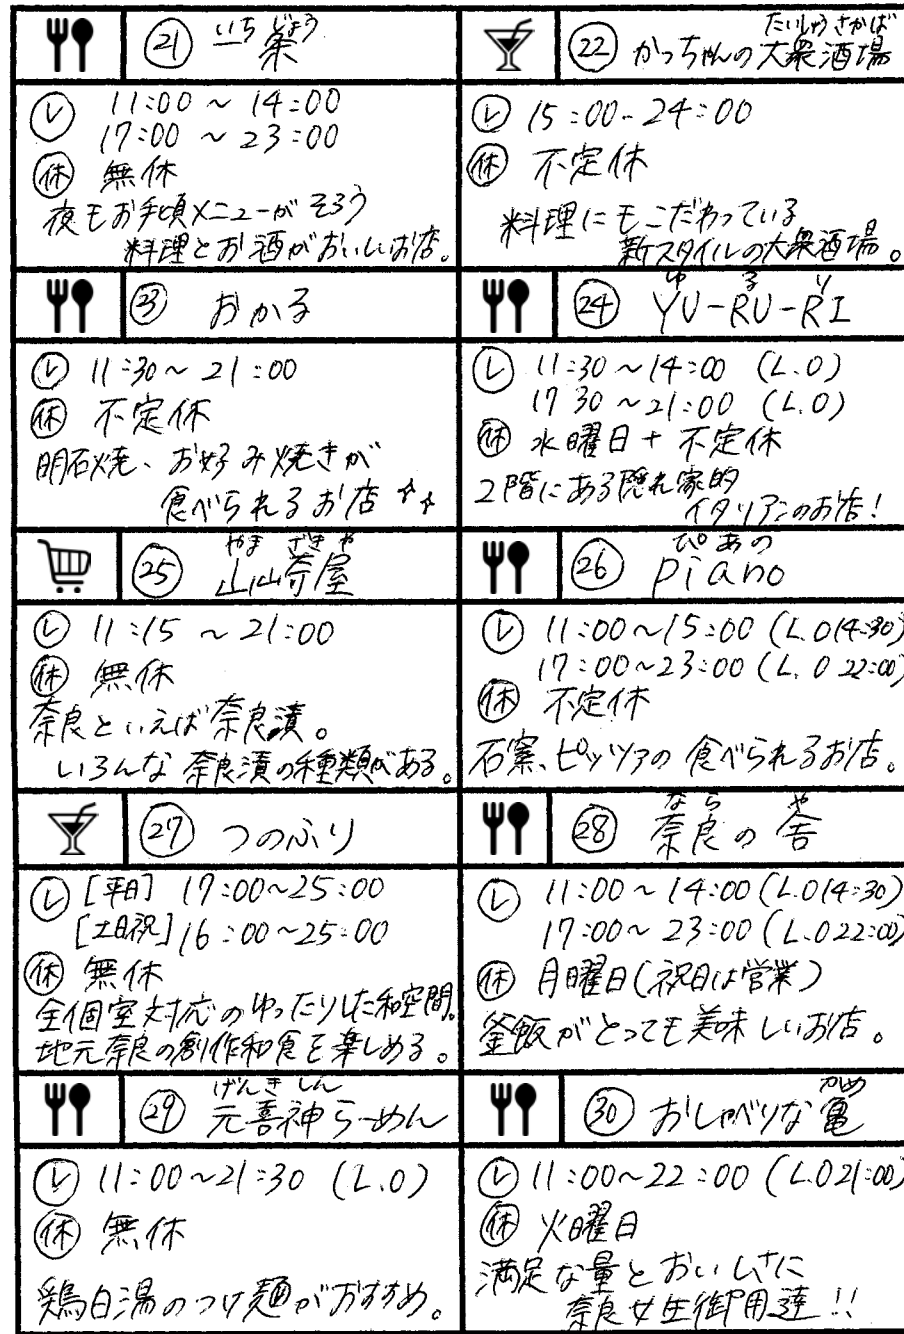 ㉑ 一条
いちじょう
11:00 ~ 14:00
17:00 ~ 23:00
㊡ 無休
夜もお手頃メニューがそろう
料理とお酒がおいしいお店。
㉒ かっちゃんの大衆酒場
たいしゅうさかば
15:00-24:00
㊡ 不定休
料理にもこだわっている
新スタイルの大衆酒場。
㉓ おかる
11:30~21:00
㊡ 不定休
明石焼、お好み焼きが
食べられるお店
㉔ YU-RU-RI
ゆるり
11:30~14:00 (L.O)
17 30~21:00 (L.O)
㊡ 水曜日+不定休
2階にある隠れ家的
イタリアンのお店!
㉕ 山崎屋
やまざきや
11:15 ~ 21:00
㊡ 無休
奈良といえば奈良漬。
いろんな奈良漬の種類がある。
㉖ piano
ぴあの
11:00~15:00 (L.O14:30)
17:00~23:00 (L.O 22:00)
㊡ 不定休
石窯、ピッツァの食べられるお店。
㉗ つのふり
[平日] 17:00~25:00
[土日祝] 16:00~25:00
㊡ 無休
全個室対応のゆったりした和空間。
地元奈良の創作和食を楽しめる。
㉘ 奈良の舎
ならや
11:00~14:00 (L.O14:30)
17:00~23:00 (L.O22:00)
㊡ 月曜日(祝日は営業)
釜飯がとっても美味しいお店。
㉙ 元喜神らーめん
げんきしん
11:00~21:30 (L.O)
㊡ 無休
鶏白湯のつけ麺がおすすめ。
㉚ おしゃべりな亀
かめ
11:00~22:00 (L.O21:00)
㊡ 火曜日
満足な量とおいしさに
奈良女生御用達!!